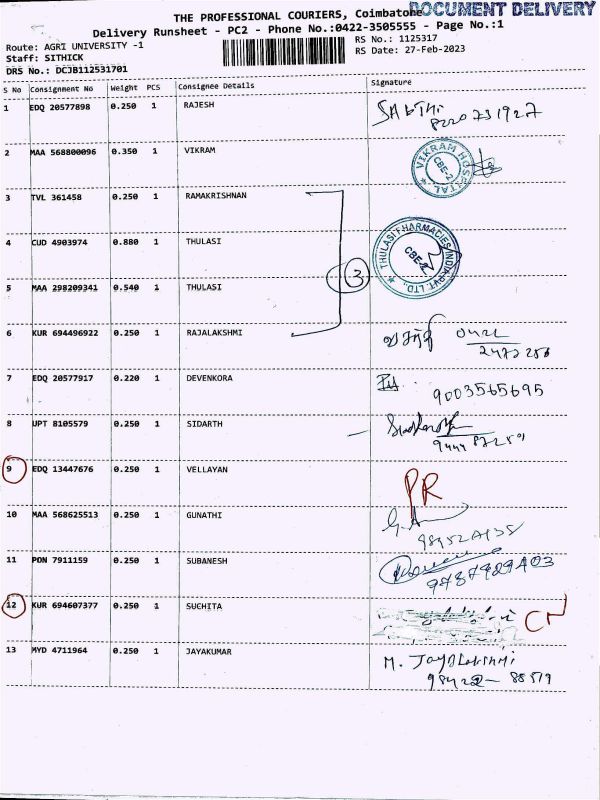 THE PROFESSIONAL COURIERS, Coimbatore
DOCUMENT DELIVERY
Delivery Runsheet - PC2 - Phone No.:0422-3505555 - Page No.:1
Route: AGRI UNIVERSITY -1
RS No.: 1125317
Staff: SITHICK
RS Date: 27-Feb-2023
DRS No.: DCJB112531701
S No Consignment No Weight PCS Consignee Details Signature
1 EDQ 20577898 0.250 1 RAJESH
8220731927
2 MAA 568800096 0.350 1 VIKRAM
VIKRAM HOSPITAL
CBE-2
3 TVL 361458 0.250 1 RAMAKRISHNAN
4 CUD 4903974 0.880 1 THULASI
THULASI PHARMACIES INDIA PVT. LTD.,
3
5 MAA 298209341 0.540 1 THULASI
6 KUR 694496922 0.250 1 RAJALAKSHMI
0422
7 EDQ 20577917 0.220 1 DEVENKORA
9003565695
8 UPT 8105579 0.250 1 SIDARTH
9 EDQ 13447676 0.250 1 VELLAYAN
PR
10 MAA 568625513 0.250 1 GUNATHI
11 PON 7911159 0.250 1 SUBANESH
9787929403
12 KUR 694607377 0.250 1 SUCHITA
CN
13 MYD 4711964 0.250 1 JAYAKUMAR
M. Jayalakshmi
98422-88519